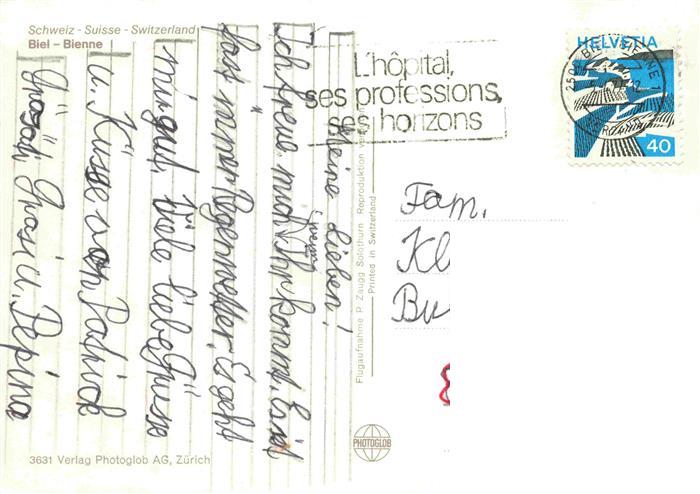 Schweiz - Suisse - Switzerland
Biel - Bienne
Meine Lieben!
Ich freue mich
wenn
Ihr kommt. Es ist
fast immer Regenwetter. Es geht
mir gut. Viele liebe Grüsse
u. Küsse von Patrick
Grosi u. Pepina
L'hôpital,
ses professions,
ses horizons
HELVETIA
40
2500 BIEL-BIENNE 1
Fam.
Kl
Bu
Flugaufnahme P. Zaugg Solothurn Reproduktion
Printed in Switzerland
PHOTOGLOB
3631 Verlag Photoglob AG, Zürich